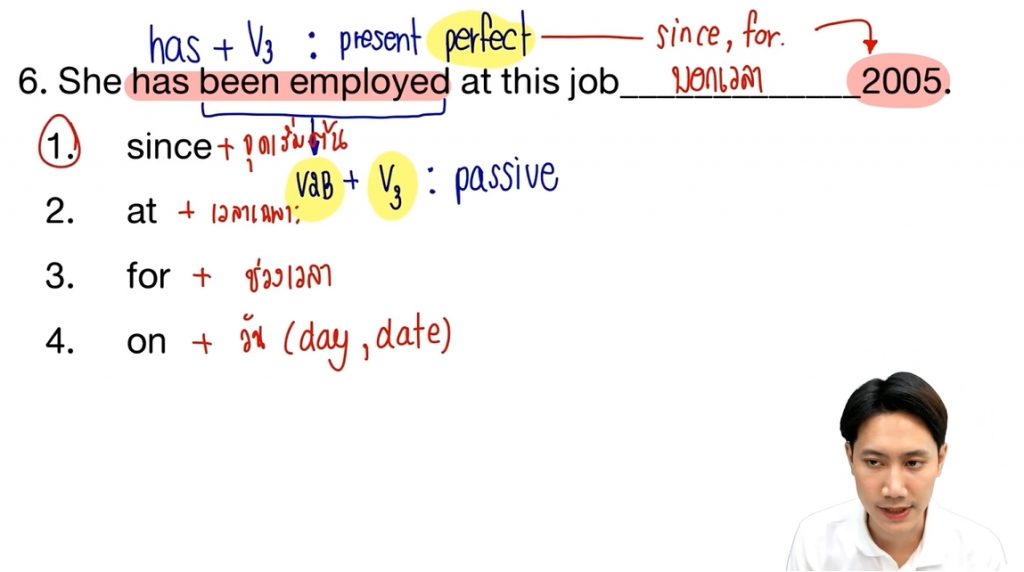 has + V3 : present perfect — since, for.
6. She has been employed at this job______________2005.
บอกเวลา
1. since + จุดเริ่มต้น
V2B + V3 : passive
2. at + เวลาเฉพาะ
3. for + ช่วงเวลา
4. on + วัน (day, date)